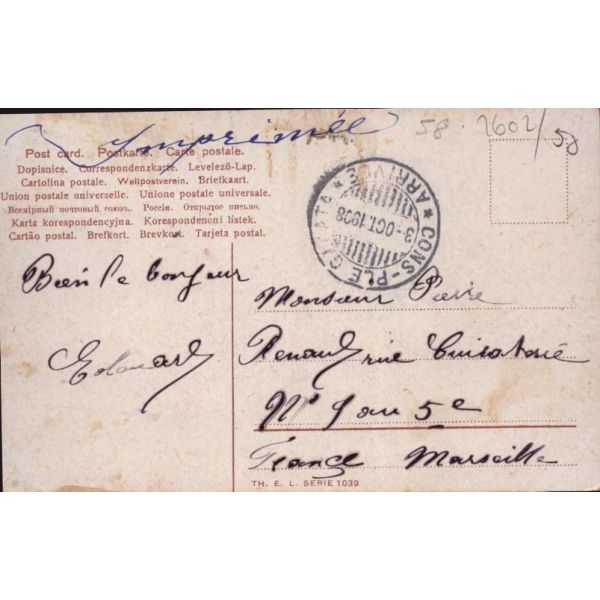 Imprimée
58 2602/50
Post card. Postkarte. Carte postale.
Dopisnice. Correspondenzkarte. Levelező-Lap.
Cartolina postale. Weltpostverein. Briefkaart.
Union postale universelle. Unione postale universale.
Всемірный почтовый союзъ. Россія. Открытое письмо.
Karta korespondencyjna. Korespondenční lístek.
Cartão postal. Brefkort. Brevkort. Tarjeta postal.
CONS-PLE GALATA
ARRIVÉE
3-OCT.1908
Bien le bonjour
Edouard
Monsieur Pierre
Renault rue
No 9 au 5e
France Marseille
TH. E. L. SERIE 1039